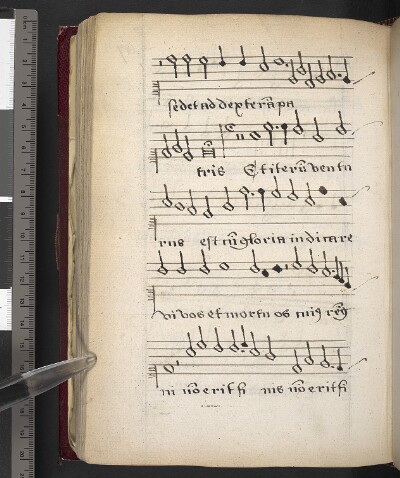 sedet ad dexterā pa
tris Et iterū ventu
rus est cū gloria iudicare
vivos et mortu os cuiꝯ reg
ni nō erit fi nis nō erit fi